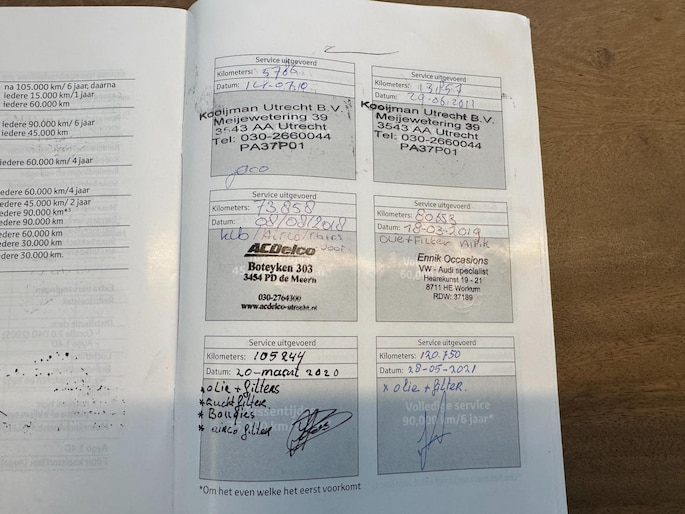 na 105.000 km/ 6 jaar, daarna
iedere 15.000 km/1 jaar
iedere 60.000 km
iedere 90.000 km/6 jaar
iedere 45.000 km
iedere 60.000 km/ 4 jaar
iedere 60.000 km/4 jaar
iedere 45.000 km/ 2 jaar
iedere 90.000 km*¹
iedere 90.000 km
iedere 60.000 km
iedere 30.000 km
iedere 30.000 km.
Service uitgevoerd
Kilometers:
Datum:
Kooijman Utrecht B.V.
Meijewetering 39
3543 AA Utrecht
Tel: 030-2660044
PA37P01
Service uitgevoerd
Kilometers:
Datum: 29-06-2011
Kooijman Utrecht B.V.
Meijewetering 39
3543 AA Utrecht
Tel: 030-2660044
PA37P01
Service uitgevoerd
Kilometers: 73.858
Datum: 08/08/2018
ACDelco
Boteyken 303
3454 PD de Meern
030-2764300
www.acdelco-utrecht.nl
Service uitgevoerd
Kilometers: 80653
Datum: 18-03-2019
Ennik Occasions
VW - Audi specialist
Hearekunst 19 - 21
8711 HE Workum
RDW: 37189
Service uitgevoerd
Kilometers: 105244
Datum: 20-maart 2020
* olie + filters
* Luchtfilter
* Bougies
* airco filter
Service uitgevoerd
Kilometers: 120.750
Datum: 28-05-2021
x olie + filter.
Volledige service
90,000 km/6 jaar*
*Om het even welke het eerst voorkomt